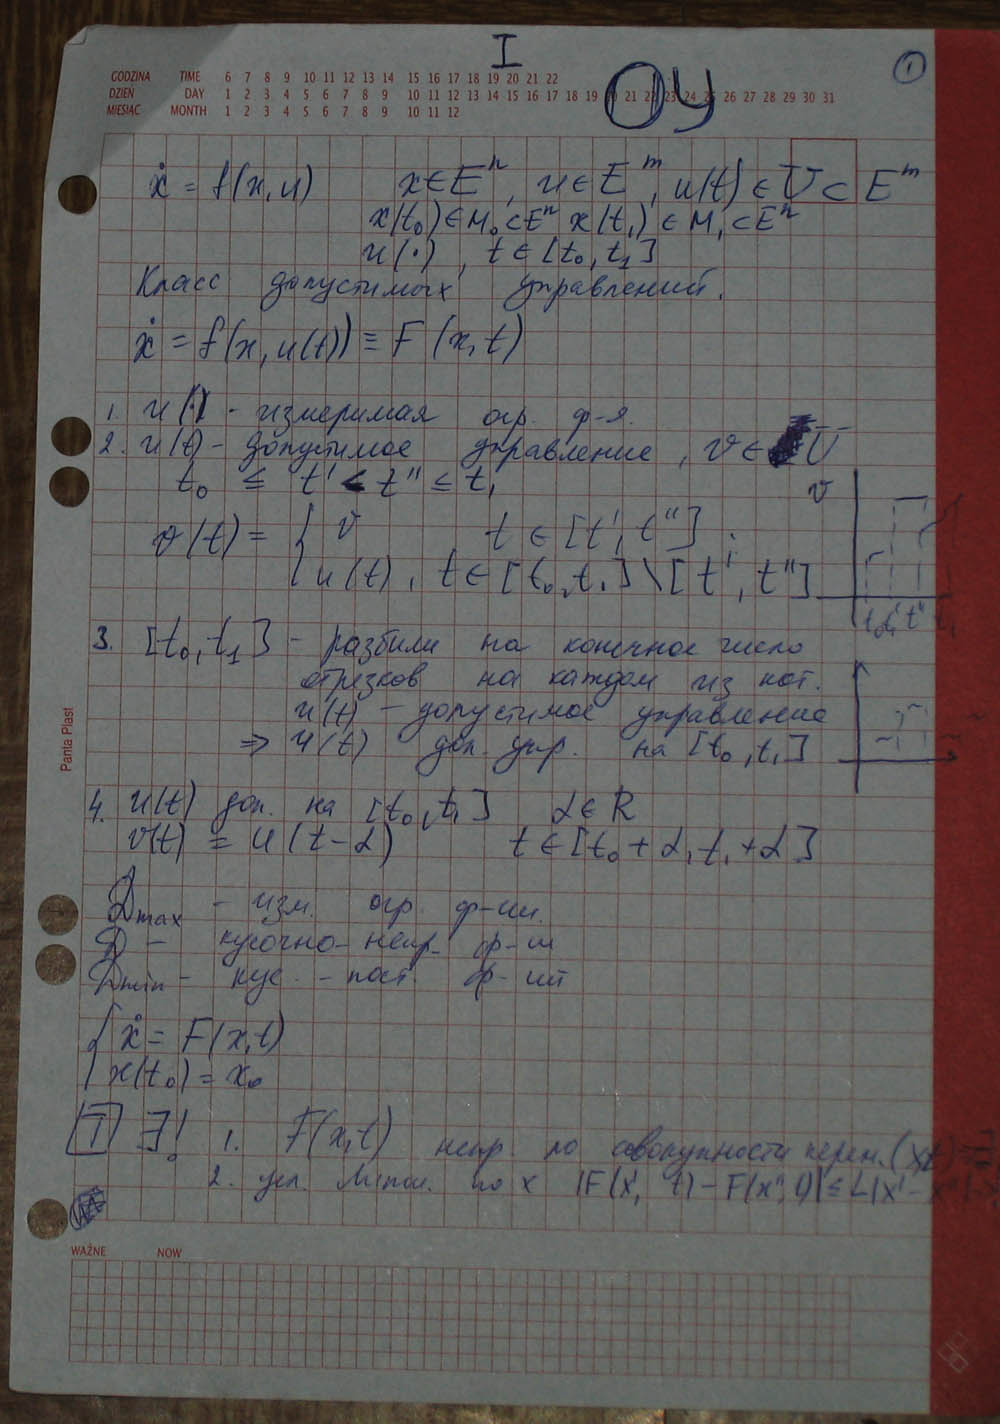 I
①
GODZINA TIME 6 7 8 9 10 11 12 13 14 15 16 17 18 19 20 21 22
DZIEŃ DAY 1 2 3 4 5 6 7 8 9 10 11 12 13 14 15 16 17 18 19 20 21 22 23 24 25 26 27 28 29 30 31
MIESIĄC MONTH 1 2 3 4 5 6 7 8 9 10 11 12
ОУ
ẋ = f(x, u) x ∈ Eⁿ, u ∈ Eᵐ, u(t) ∈ U ⊂ Eᵐ
x(t₀) ∈ M₀ ⊂ Eⁿ x(t₁) ∈ M₁ ⊂ Eⁿ
u(·), t ∈ [t₀, t₁]
Класс допустимых управлений.
ẋ = f(x, u(t)) ≡ F(x, t)
1. u(·) - измеримая огр. ф-я.
2. u(t) - допустимое управление, v ∈ U
t₀ ≤ t' < t'' ≤ t₁
v
v(t) = { v t ∈ [t', t'']
u(t), t ∈ [t₀, t₁] \ [t', t'']
t₀ t' t'' t₁
3. [t₀, t₁] - разбили на конечное число
отрезков на каждом из кот.
u(t) - допустимое управление
⇒ u(t) доп. упр. на [t₀, t₁]
4. u(t) доп. на [t₀, t₁] α ∈ R
v(t) = u(t-α) t ∈ [t₀ + α, t₁ + α]
Dmax - изм. огр. ф-ии.
D - кусочно-непр. ф-ии
Dmin - кус. - пост. ф-ии
{ ẋ = F(x, t)
x(t₀) = x₀
Т ∃! 1. F(x, t) непр. по совокупности перем. (x, t)
2. усл. Липш. по x |F(x', t) - F(x'', t)| ≤ L|x' - x''|
Panta Plast
WAŻNE NOW